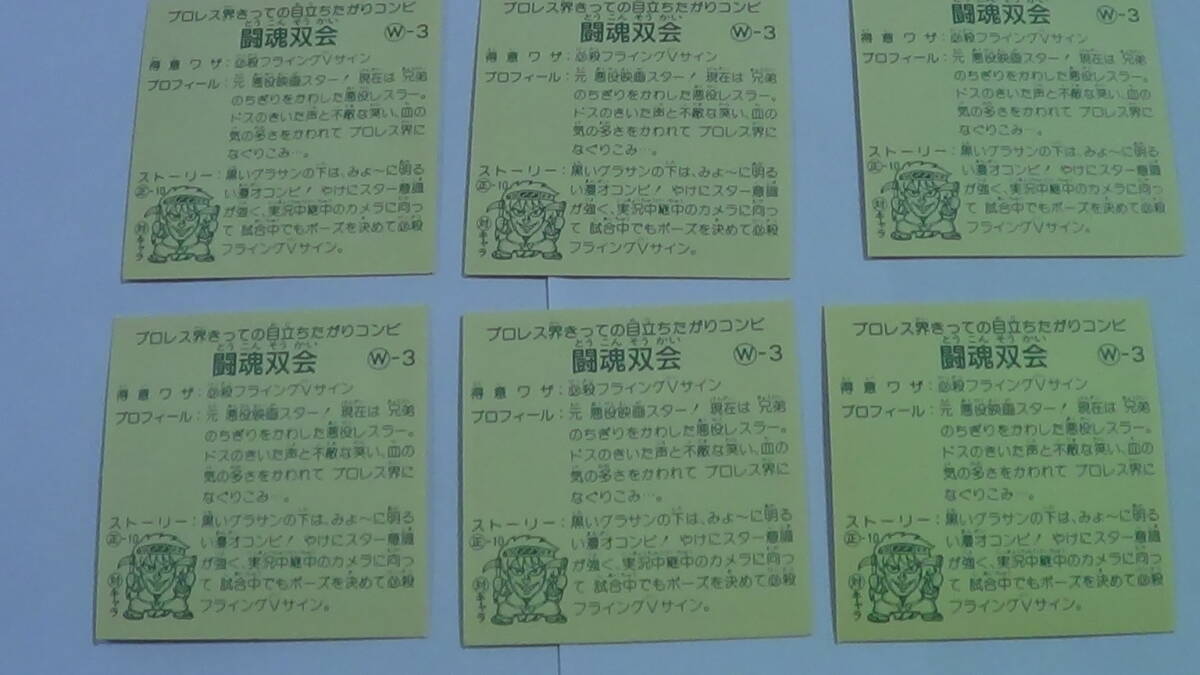 プロレス界きっての目立ちたがりコンビ
とうこんそうかい
闘魂双会 W-3
得意ワザ:必殺フライングVサイン
プロフィール:元 悪役映画スター! 現在は 兄弟
のちぎりをかわした悪役レスラー。
ドスのきいた声と不敵な笑い、血の
気の多さをかわれて プロレス界に
なぐりこみ…。
ストーリー:黒いグラサンの下は、みょ〜に明る
正-10 い漫才コンビ! やけにスター意識
が強く、実況中継中のカメラに向っ
て 試合中でもポーズを決めて必殺
フライングVサイン。
対キャラ
プロレス界きっての目立ちたがりコンビ
とうこんそうかい
闘魂双会 W-3
得意ワザ:必殺フライングVサイン
プロフィール:元 悪役映画スター! 現在は 兄弟
のちぎりをかわした悪役レスラー。
ドスのきいた声と不敵な笑い、血の
気の多さをかわれて プロレス界に
なぐりこみ…。
ストーリー:黒いグラサンの下は、みょ〜に明る
正-10 い漫才コンビ! やけにスター意識
が強く、実況中継中のカメラに向っ
て 試合中でもポーズを決めて必殺
フライングVサイン。
対キャラ
闘魂双会 W-3
得意ワザ:必殺フライングVサイン
プロフィール:元 悪役映画スター! 現在は 兄弟
のちぎりをかわした悪役レスラー。
ドスのきいた声と不敵な笑い、血の
気の多さをかわれて プロレス界に
なぐりこみ…。
ストーリー:黒いグラサンの下は、みょ〜に明る
正-10 い漫才コンビ! やけにスター意識
が強く、実況中継中のカメラに向っ
て 試合中でもポーズを決めて必殺
フライングVサイン。
対キャラ
プロレス界きっての目立ちたがりコンビ
とうこんそうかい
闘魂双会 W-3
得意ワザ:必殺フライングVサイン
プロフィール:元 悪役映画スター! 現在は 兄弟
のちぎりをかわした悪役レスラー。
ドスのきいた声と不敵な笑い、血の
気の多さをかわれて プロレス界に
なぐりこみ…。
ストーリー:黒いグラサンの下は、みょ〜に明る
正-10 い漫才コンビ! やけにスター意識
が強く、実況中継中のカメラに向っ
て 試合中でもポーズを決めて必殺
フライングVサイン。
対キャラ
プロレス界きっての目立ちたがりコンビ
とうこんそうかい
闘魂双会 W-3
得意ワザ:必殺フライングVサイン
プロフィール:元 悪役映画スター! 現在は 兄弟
のちぎりをかわした悪役レスラー。
ドスのきいた声と不敵な笑い、血の
気の多さをかわれて プロレス界に
なぐりこみ…。
ストーリー:黒いグラサンの下は、みょ〜に明る
正-10 い漫才コンビ! やけにスター意識
が強く、実況中継中のカメラに向っ
て 試合中でもポーズを決めて必殺
フライングVサイン。
対キャラ
プロレス界きっての目立ちたがりコンビ
とうこんそうかい
闘魂双会 W-3
得意ワザ:必殺フライングVサイン
プロフィール:元 悪役映画スター! 現在は 兄弟
のちぎりをかわした悪役レスラー。
ドスのきいた声と不敵な笑い、血の
気の多さをかわれて プロレス界に
なぐりこみ…。
ストーリー:黒いグラサンの下は、みょ〜に明る
正-10 い漫才コンビ! やけにスター意識
が強く、実況中継中のカメラに向っ
て 試合中でもポーズを決めて必殺
フライングVサイン。
対キャラ